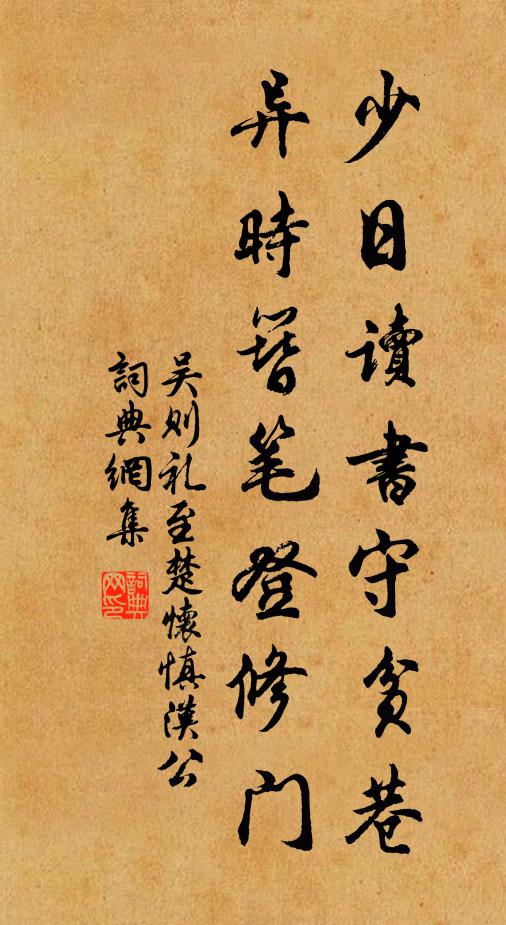 少日讀書守貧巷
异時簪笔登修門
吴则礼至楚懷慎漢公
詞典網集
詞典网印